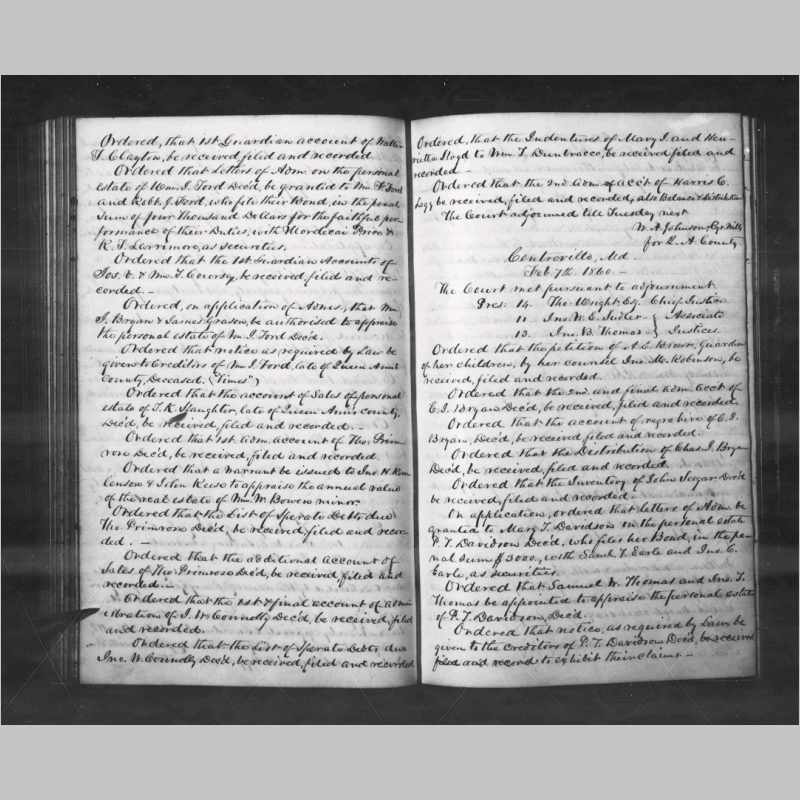 Ordered, that 1st Guardian account of Walter
T. Clayton, be received filed and recorded
Ordered that Letters of Adm. on the personal
estate of Wm. I. Ford Dec'd, be granted to Wm. F. Ford
and Robt. J. Ford, who file their Bond, in the penal
Sum of four Thousand Dollars for the faithful per-
formance of their Duties, with Mordecai Price &
R. T. Larrimore, as securities.
Ordered that the 1st Guardian Accounts of
Jos. & Wm. T. be received, filed and re-
corded. —
Ordered, on application of Adms, that Wm
J. Bryan & James Grason, be authorised to appraise
the personal estate of Wm. I. Ford Dec'd.
Ordered that notice as required by Law be
given to Creditors of Wm. I. Ford, late of Queen Ann's
County, Deceased. ("Times")
Ordered that the account of Sales of personal
estate of T. K. Slaughter, late of Queen Anns county,
Dec'd, be received, filed and recorded. —
Ordered that 1st adm. account of Tho. Prim-
rose Dec'd, be received, filed and recorded
Ordered that a warrant be issued to Jno. H. Tom-
linson & John Keis to appraise the annual value
of the real estate of Wm. W. Bowers minor.
Ordered that the List of Sperate Debts due
Tho. Primrose Dec'd, be received, filed and recor-
ded. —
Ordered that the additional account of
Sales of Tho. Primrose Dec'd, be received, filed and
recorded. —
Ordered that the 1st & final account of admin-
istration of J. W. Connolly Dec'd, be received, filed
and recorded.
Ordered that the List of Sperate Debts, due
Jno. W. Connolly Dec'd, be received, filed and recorded
Ordered, that the Indentures of Mary I. and Hen-
rietta Lloyd to Wm. T. Dunbracco, be received filed and
recorded —
Ordered that the 2nd adm. acct of Harris C.
Legg be received, filed and recorded, also Balance & distribution
The Court adjourned till Tuesday next
W. A. Johnson, Rgr. Wills
for Q. A. County
Centreville, Md.
Feb. 7th. 1860. —
The Court met pursuant to adjournment
Pres: 14. Tho. Wright, Esq. Chief Justice
11 Jno. W. E. Sudler } Associate
13. Jno. B. Thomas } Justices
Ordered that the petition of A. L. Brown, Guardian
of her children, by her counsel Jno. M. Robinson, be
received, filed and recorded.
Ordered that the 2nd and final adm. acct of
C. I. Bryan Dec'd, be received, filed and recorded
Ordered that the account of negro hire of C. I.
Bryan, Dec'd, be received filed and recorded.
Ordered that the Distribution of Chas. I. Bryan
Dec'd, be received, filed and recorded.
Ordered that the Inventory of John Segar Dec'd
be received, filed and recorded.
On application, ordered that letters of Adm. be
granted to Mary T. Davidson on the personal estate
P. T. Davidson Dec'd, who files her Bond, in the pe-
nal sum $3000, with Saml. T. Earle and Jno. C.
Earle, as securities.
Ordered that Samuel W. Thomas and Jno. T.
Thomas be appointed to appraise the personal estate
of P. T. Davidson, Dec'd.
Ordered that notice, as required by Law be
given to the creditors of P. T. Davidson Dec'd, be received
filed and record to exhibit their claims —